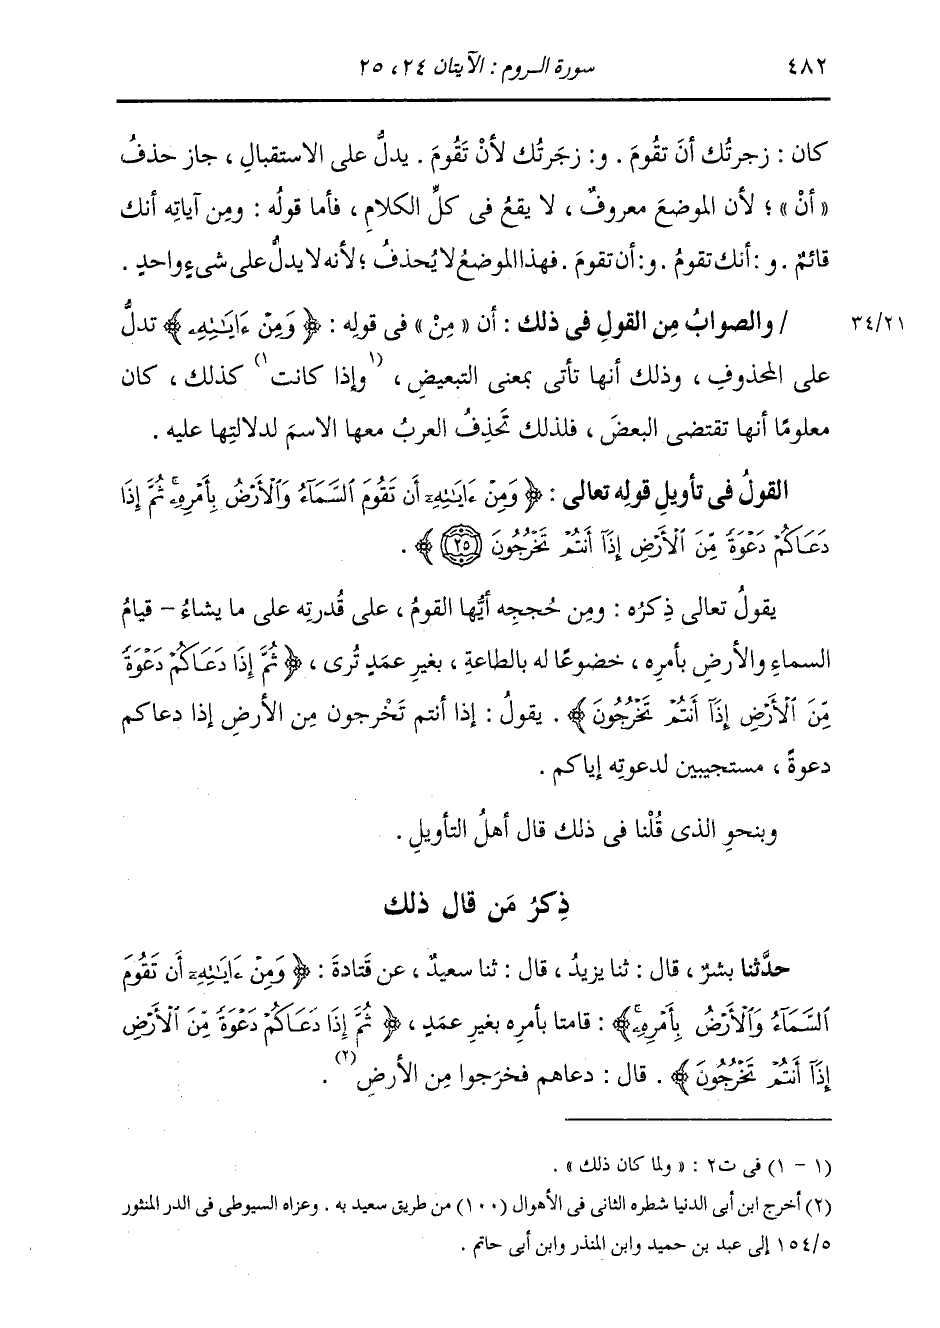 ٤٨٢ سورة الروم : الآيتان ٢٤ ، ٢٥
كان : زجرتُك أنَ تقُومَ . و : زجَرتُك لأنْ تَقُومَ . يدلُّ على الاستقبالِ ، جاز حذفُ
« أنْ » ؛ لأن الموضعَ معروفٌ ، لا يقعُ فى كلِّ الكلامِ ، فأما قولُه : ومِن آياتِه أنك
قائمٌ . و : أنك تقومُ . و : أن تقومَ . فهذا الموضعُ لا يُحذفُ ؛ لأنه لا يدلُّ على شىءٍ واحدٍ .
٣٤/٢١ / والصوابُ مِن القولِ فى ذلك : أن « مِنْ » فى قولِه : ﴿ وَمِنْ ءَايَـٰتِهِۦ ﴾ تدلُّ
على المحذوفِ ، وذلك أنها تأتى بمعنى التبعيضِ ، (١) وإذا كانت (١) كذلك ، كان
معلومًا أنها تقتضى البعضَ ، فلذلك تَحذِفُ العربُ معها الاسمَ لدلالتِها عليه .
القولُ فى تأويلِ قولِه تعالى : ﴿ وَمِنْ ءَايَـٰتِهِۦٓ أَن تَقُومَ ٱلسَّمَآءُ وَٱلْأَرْضُ بِأَمْرِهِۦۚ ثُمَّ إِذَا
دَعَاكُمْ دَعْوَةً مِّنَ ٱلْأَرْضِ إِذَآ أَنتُمْ تَخْرُجُونَ ٢٥ ﴾ .
يقولُ تعالى ذِكرُه : ومِن حُججِه أيُّها القومُ ، على قُدرتِه على ما يشاءُ – قيامُ
السماءِ والأرضِ بأمرِه ، خضوعًا له بالطاعةِ ، بغيرِ عمَدٍ تُرى ، ﴿ ثُمَّ إِذَا دَعَاكُمْ دَعْوَةً
مِّنَ ٱلْأَرْضِ إِذَآ أَنتُمْ تَخْرُجُونَ ﴾ . يقولُ : إذا أنتم تَخْرجون مِن الأرضِ إذا دعاكم
دعوةً ، مستجيبين لدعوتِه إياكم .
وبنحوِ الذى قُلْنا فى ذلك قال أهلُ التأويلِ .
ذِكرُ مَن قال ذلك
حدَّثنا بشرٌ ، قال : ثنا يزيدُ ، قال : ثنا سعيدٌ ، عن قَتادةَ : ﴿ وَمِنْ ءَايَـٰتِهِۦٓ أَن تَقُومَ
ٱلسَّمَآءُ وَٱلْأَرْضُ بِأَمْرِهِۦۚ ﴾ : قامتا بأمرِه بغيرِ عمَدٍ ، ﴿ ثُمَّ إِذَا دَعَاكُمْ دَعْوَةً مِّنَ ٱلْأَرْضِ
إِذَآ أَنتُمْ تَخْرُجُونَ ﴾ . قال : دعاهم فخرَجوا مِن الأرضِ (٢) .
(١ – ١) فى ت٢ : « ولما كان ذلك » .
(٢) أخرج ابن أبى الدنيا شطره الثانى فى الأهوال (١٠٠) من طريق سعيد به . وعزاه السيوطى فى الدر المنثور
١٥٤/٥ إلى عبد بن حميد وابن المنذر وابن أبى حاتم .